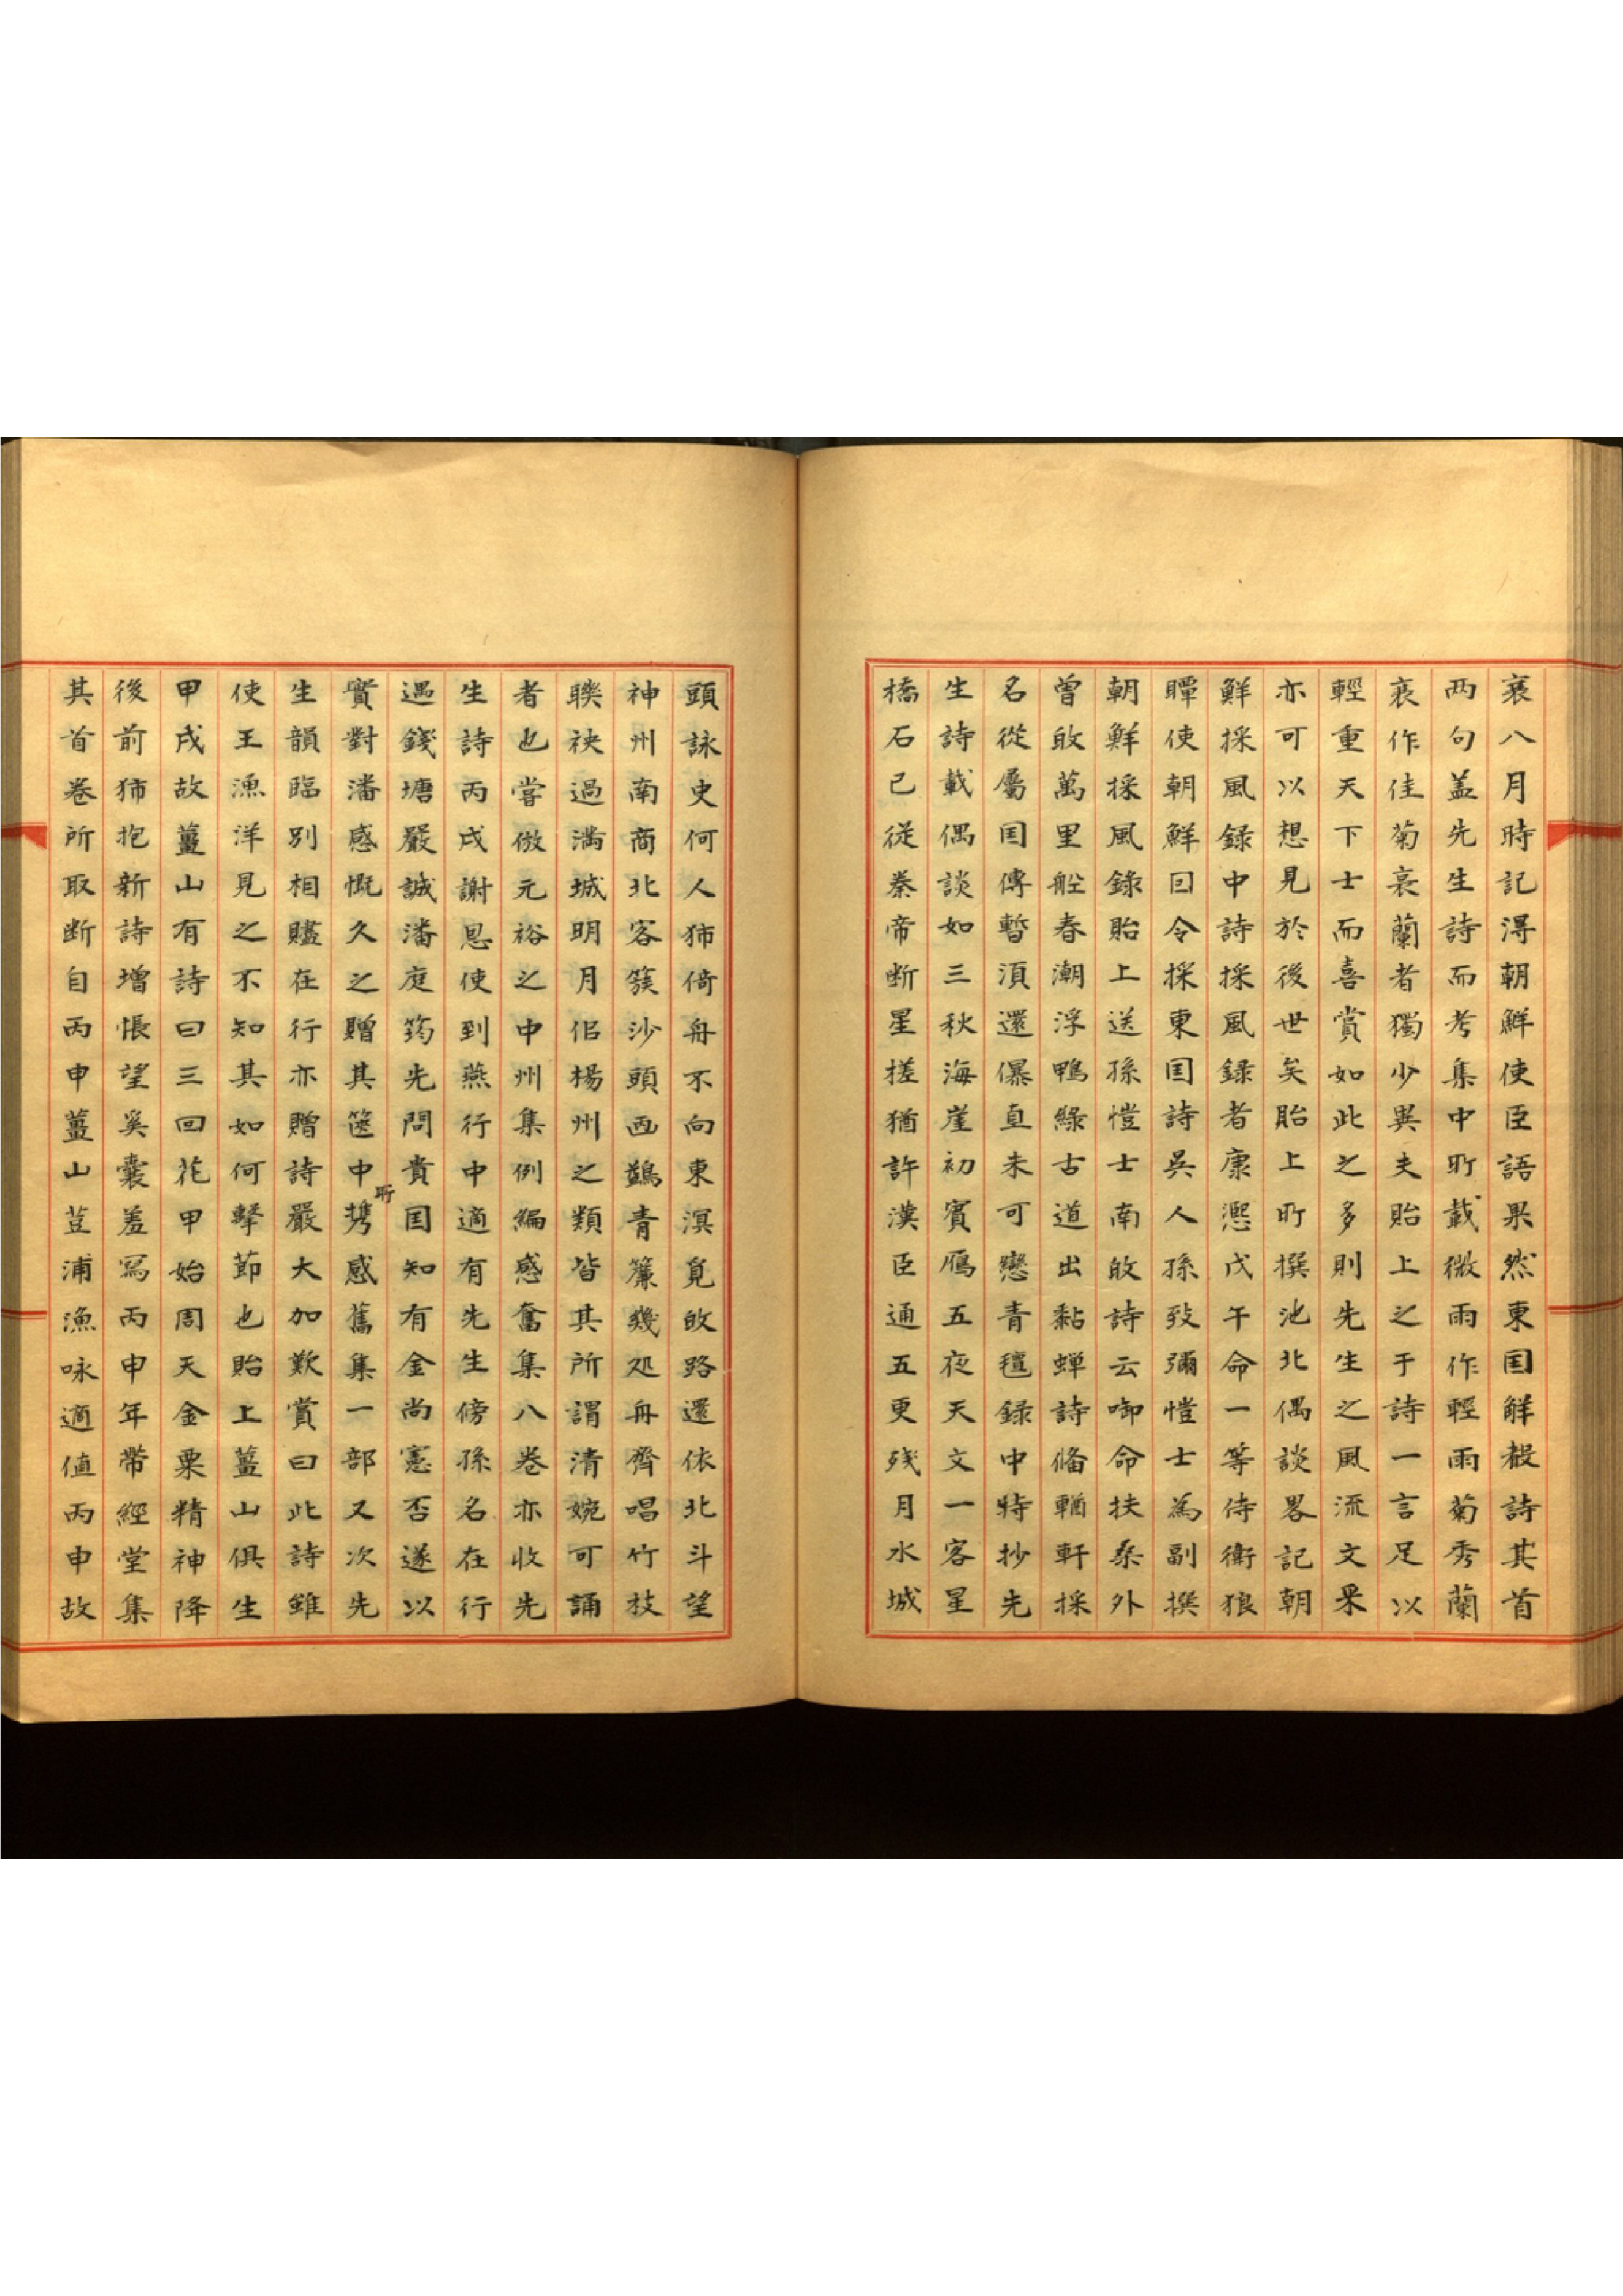 衰八月時記淂朝鮮使臣語果然東国觧聲詩其首
两句盖先生詩而考集中㪽載微雨作輕雨菊秀蘭
衰作佳菊衰蘭者獨少異夫貽上之于詩一言足以
輕重天下士而喜賞如此之多則先生之風流文采
亦可以想見於後世矣貽上㪽撰池北偶談畧記朝
鮮採風録中詩採風録者康熙戊午命一等侍衛狼
瞫使朝鮮囙令採東国詩吳人孫致彌愷士為副撰
朝鮮採風錄貽上送孫愷士南敀詩云啣命扶桑外
曾敀萬里船春潮浮鴨緑古道出黏蟬詩俻輶軒採
名從屬国傳暫湏還㬥直未可戀青氊録中特抄先
生詩載偶談如三秋海崖初賓鴈五夜天文一客星
橋石已從秦帝断星槎猶許漢臣通五更残月水城
頭詠史何人獨倚舟不向東溟覓敀路還依北斗望
神州南商北客簇沙頭画鷁青簾幾処舟齊唱竹枝
聯袂過满城明月佀楊州之類皆其所謂清婉可誦
者也嘗倣元裕之中州集例編感奮集八卷亦收先
生詩丙戌謝恩使到燕行中適有先生傍孫名在行
遇錢塘嚴誠潘庭筠先問貴国知有金尚憲否遂以
實對潘感慨久之贈其篋中㪽携感舊集一部又次先
生韻臨別相贐在行亦贈詩嚴大加歎賞曰此詩雖
使王漁洋見之不知其如何擊莭也貽上薑山俱生
甲戌故薑山有詩曰三回花甲始周天金粟精神降
後前獨抱新詩增悵望奚囊羞寫丙申年帶經堂集
其首卷所取断自丙申薑山荳浦漁咏適值丙申故